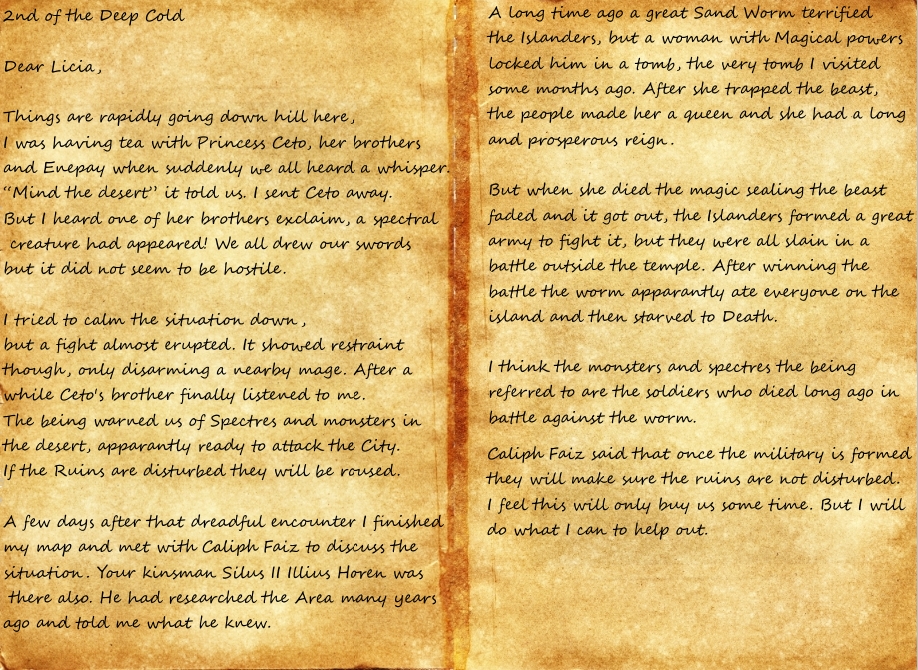 2nd of the Deep Cold
Dear Licia,
Things are rapidly going down hill here,
I was having tea with Princess Ceto, her brothers
and Enepay when suddenly we all heard a whisper.
“Mind the desert” it told us. I sent Ceto away.
But I heard one of her brothers exclaim, a spectral
creature had appeared! We all drew our swords
but it did not seem to be hostile.
I tried to calm the situation down,
but a fight almost erupted. It showed restraint
though, only disarming a nearby mage. After a
while Ceto's brother finally listened to me.
The being warned us of Spectres and monsters in
the desert, apparantly ready to attack the City.
If the Ruins are disturbed they will be roused.
A few days after that dreadful encounter I finished
my map and met with Caliph Faiz to discuss the
situation. Your kinsman Silus II Illius Horen was
there also. He had researched the Area many years
ago and told me what he knew.
A long time ago a great Sand Worm terrified
the Islanders, but a woman with Magical powers
locked him in a tomb, the very tomb I visited
some months ago. After she trapped the beast,
the people made her a queen and she had a long
and prosperous reign.
But when she died the magic sealing the beast
faded and it got out, the Islanders formed a great
army to fight it, but they were all slain in a
battle outside the temple. After winning the
battle the worm apparantly ate everyone on the
island and then starved to Death.
I think the monsters and spectres the being
referred to are the soldiers who died long ago in
battle against the worm.
Caliph Faiz said that once the military is formed
they will make sure the ruins are not disturbed.
I feel this will only buy us some time. But I will
do what I can to help out.